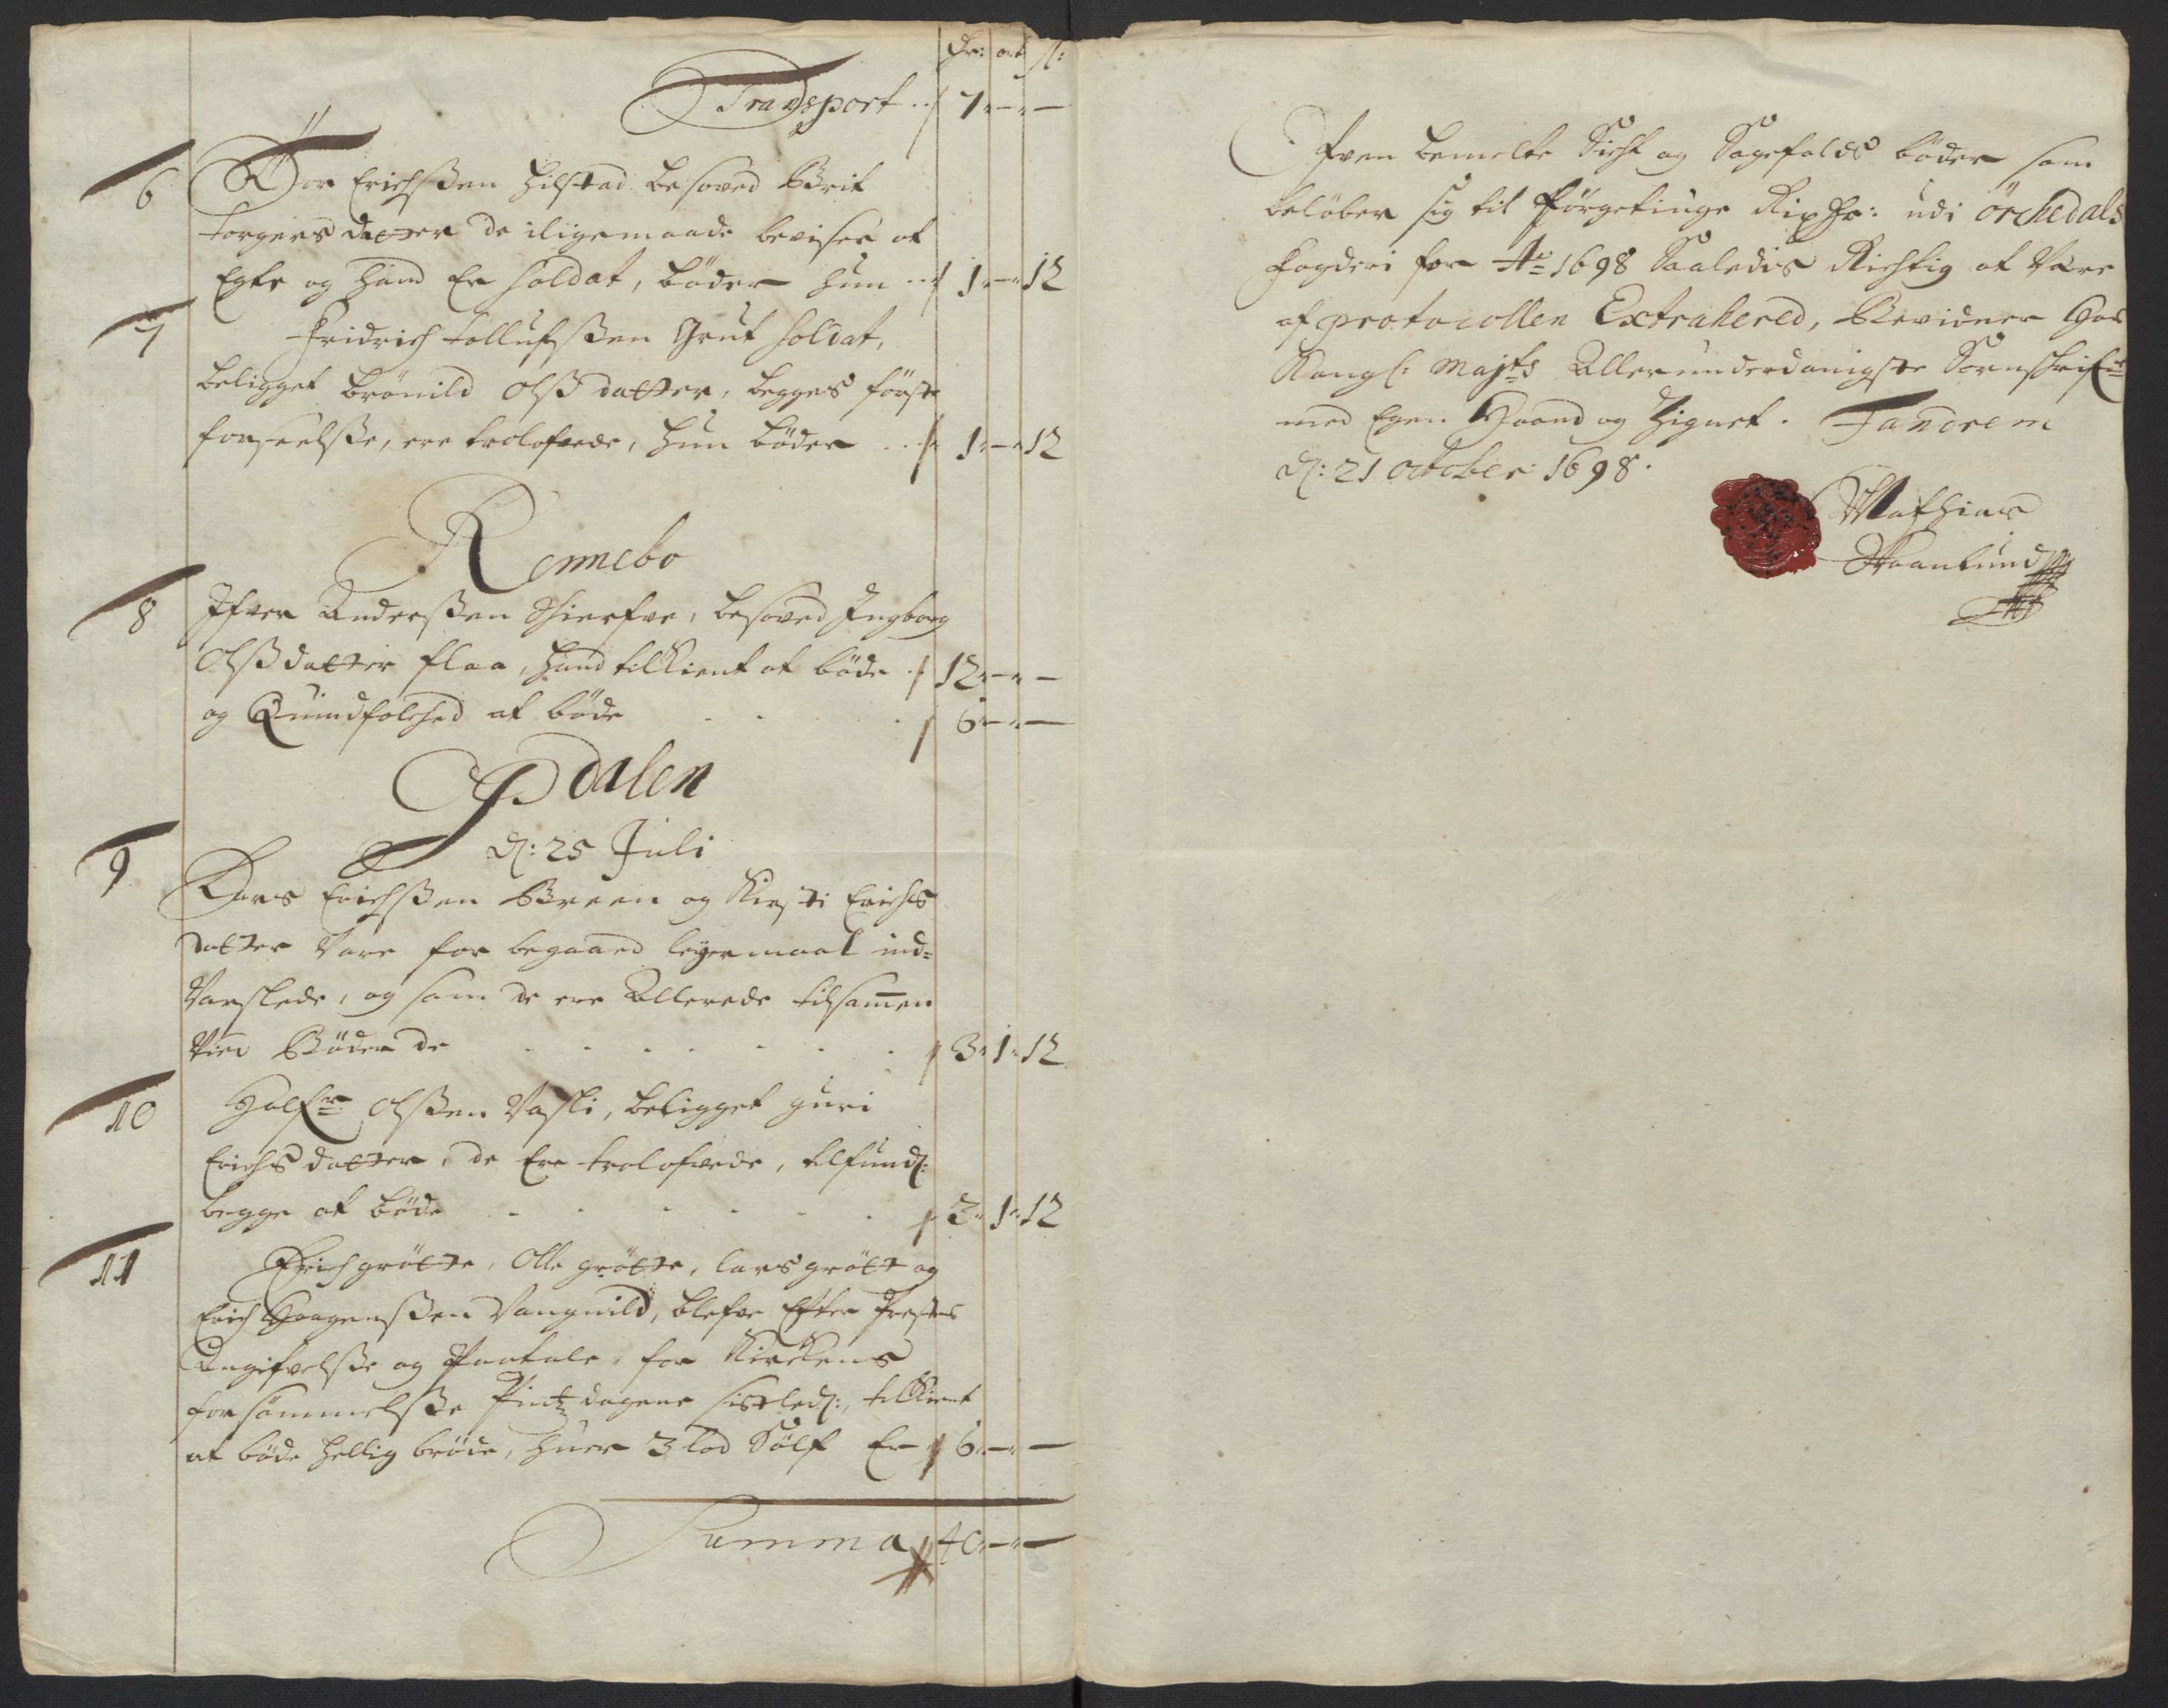 Dr: ort s:
Transport .. 7 - -
6 Tor Erichssen Hilstad besoved Berit
torgers datter de iligemaade beviser at
Egte og hand Er Soldat, böder hun .. 1 - 12
7 Fridrich tollufssen Grut Soldat,
beligget brönild Olssdatter, begges förste
forseelsse, ere trolofvede, hun böder .. 1 - 12
Rennebo
8 Ifver Anderssen Schierfve, besoved Ingborg
Olssdatter flaa, hand tilkient at böde . 12 - -
og Quindfolched at böde . . . . 6 - -
Opdalen
d: 25 Juli
9 Lars Erichssen Breen og Kirsti Erichs
datter Vare for begaaed leyermaal ind=
Varslede, og som de ere Allerede tilsamen
Viede Böder de . . . . . . . 3 1 12
10 Halfr: Olssen Vasli, beligget guri
Erichs datter, de Ere trolofvede, tilfund:
begge at böde . . . . . . 3 1 12
11 Erich grötte, Olle grötte, lars grött og
Erich Haagenssen Vangnild, blefve Efter Prestens
Angifvelsse og Paatale, for Kirckens
forsömmelsse Pintzdagene sistled:, tilkient
at böde hellig bröde, huer 3 lod Sölf Er 6 - -
Summa 40 - -
Ofven bemelte Sicht og Sagefalds böder som
belöber sig til förgetiuge Rix Dr: udi örchedals
fogderi for Ao 1698 Saaledis Richtig at Være
af protocollen Extrahered, Bevidner Hos
Kongl: Mayts Allerunderdanigste Sornschrifr
med Egen Haand og Zignet. Fandrem
d: 21 october 1698.
Mathias
Skaanlund